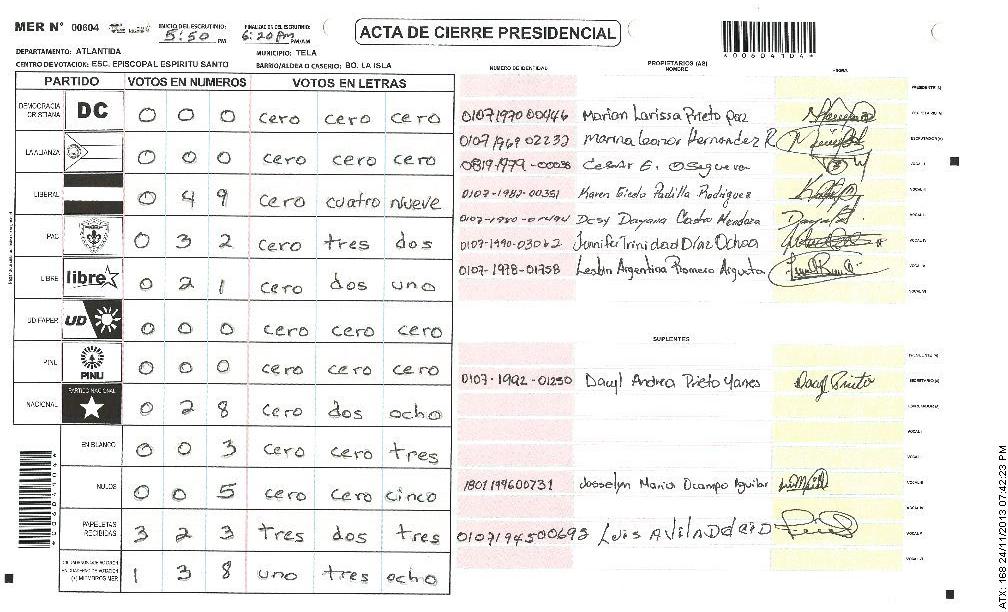 MER N° 00604 INICIO DEL ESCRUTINIO: 5:50 PM FINALIZACION DEL ESCRUTINIO: 6:20 pm PM/AM
ACTA DE CIERRE PRESIDENCIAL
*00604104*
DEPARTAMENTO: ATLANTIDA MUNICIPIO: TELA
CENTRO DE VOTACION: ESC. EPISCOPAL ESPIRITU SANTO BARRIO/ALDEA O CASERIO: BO. LA ISLA
PARTIDO VOTOS EN NUMEROS VOTOS EN LETRAS
DEMOCRACIA CRISTIANA DC 0 0 0 cero cero cero
LA ALIANZA 0 0 0 cero cero cero
LIBERAL 0 4 9 cero cuatro nueve
PAC 0 3 2 cero tres dos
LIBRE libre 0 2 1 cero dos uno
UD FAPER UD 0 0 0 cero cero cero
PINU PINU 0 0 0 cero cero cero
NACIONAL PARTIDO NACIONAL 0 2 8 cero dos ocho
EN BLANCO 0 0 3 cero cero tres
NULOS 0 0 5 cero cero cinco
PAPELETAS RECIBIDAS 3 2 3 tres dos tres
1 3 8 uno tres ocho
NUMERO DE IDENTIDAD PROPIETARIOS (AS) NOMBRE FIRMA
PRESIDENTE (A)
0107197000446 Marian Larissa Prieto Paz SECRETARIO (A)
0107196902232 Marina Leonor Hernandez R ESCRUTADOR (A)
0819-1979-00038 Cesar E. Oseguera VOCAL I
0107-1982-00351 Karen Padilla Rodriguez VOCAL II
Desy Dayana Castro Mendoza
0107-1990-03062 Jennifer Trinidad Díaz Ochoa VOCAL IV
0107-1978-01758 Lesbin Argentina Romero Argueta
SUPLENTES
0107-1992-01250 Daryl Andrea Prieto Yanes Daryl Prieto SECRETARIO (A)
VOCAL I
1801199600731 Josselyn Maria Ocampo Aguilar VOCAL III
0107194500692 Luis Avila
ATX: 168 24/11/2013 07:42:23 PM